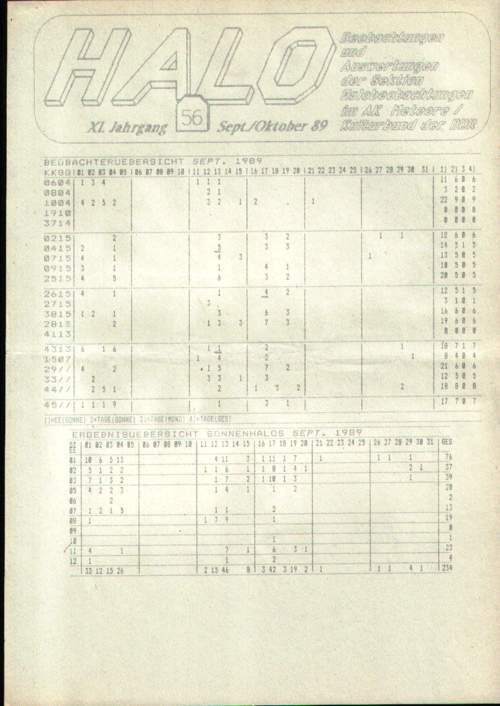 HALO
Beobachtungen
und
Auswertungen
der Sektion
Halobeobachtungen
im AK Meteore /
Kulturbund der DDR
XI. Jahrgang 56 Sept./Oktober 89
BEOBACHTERUEBERSICHT SEPT. 1989
KKGG 01 02 03 04 05 06 07 08 09 10 11 12 13 14 15 16 17 18 19 20 21 22 23 24 25 26 27 28 29 30 31 1) 2) 3) 4)
0604 1 3 4 1 1 1 11 6 0 6
0804 2 1 3 2 0 2
1004 4 2 5 2 3 2 1 2 1 22 9 0 9
1910 0 0 0 0
3714 0 0 0 0
0215 2 3 3 2 1 1 12 6 0 6
0415 2 1 5 3 3 14 5 1 5
0715 4 1 4 3 1 13 5 0 5
0915 3 1 1 4 1 10 5 0 5
2515 4 5 6 3 2 20 5 0 5
2615 4 1 1 4 2 12 5 1 5
2715 3 3 1 0 1
3815 1 2 1 3 6 3 16 6 0 6
2813 2 1 3 3 7 3 19 6 0 6
4113 0 0 0 0
4313 6 1 6 1 1 2 1 18 7 1 7
1507 1 4 2 1 8 4 0 4
29// 4 2 1 5 7 2 21 6 0 6
33// 2 3 3 1 3 12 5 0 5
44// 2 5 1 2 1 3 2 2 18 8 0 8
45// 1 1 1 9 1 3 1 17 7 0 7
1)=EE(SONNE) 2)=TAGE(SONNE) 3)=TAGE(MOND) 4)=TAGE(GES)
ERGEBNISUEBERSICHT SONNENHALOS SEPT. 1989
EE 01 02 03 04 05 06 07 08 09 10 11 12 13 14 15 16 17 18 19 20 21 22 23 24 25 26 27 28 29 30 31 GES
01 10 6 5 13 4 11 3 1 11 1 7 1 1 1 1 76
02 5 1 2 2 1 1 6 1 1 8 1 4 1 2 1 37
03 7 1 3 2 1 7 2 1 10 1 3 1 39
05 4 2 2 3 1 4 1 1 2 20
06 2 2
07 1 2 1 5 1 1 2 13
08 1 1 7 9 1 19
09 0
10 1 1
11 4 1 7 1 6 3 1 23
12 1 1 2 4
33 12 15 26 2 13 46 8 3 42 3 19 2 1 1 1 4 1 234